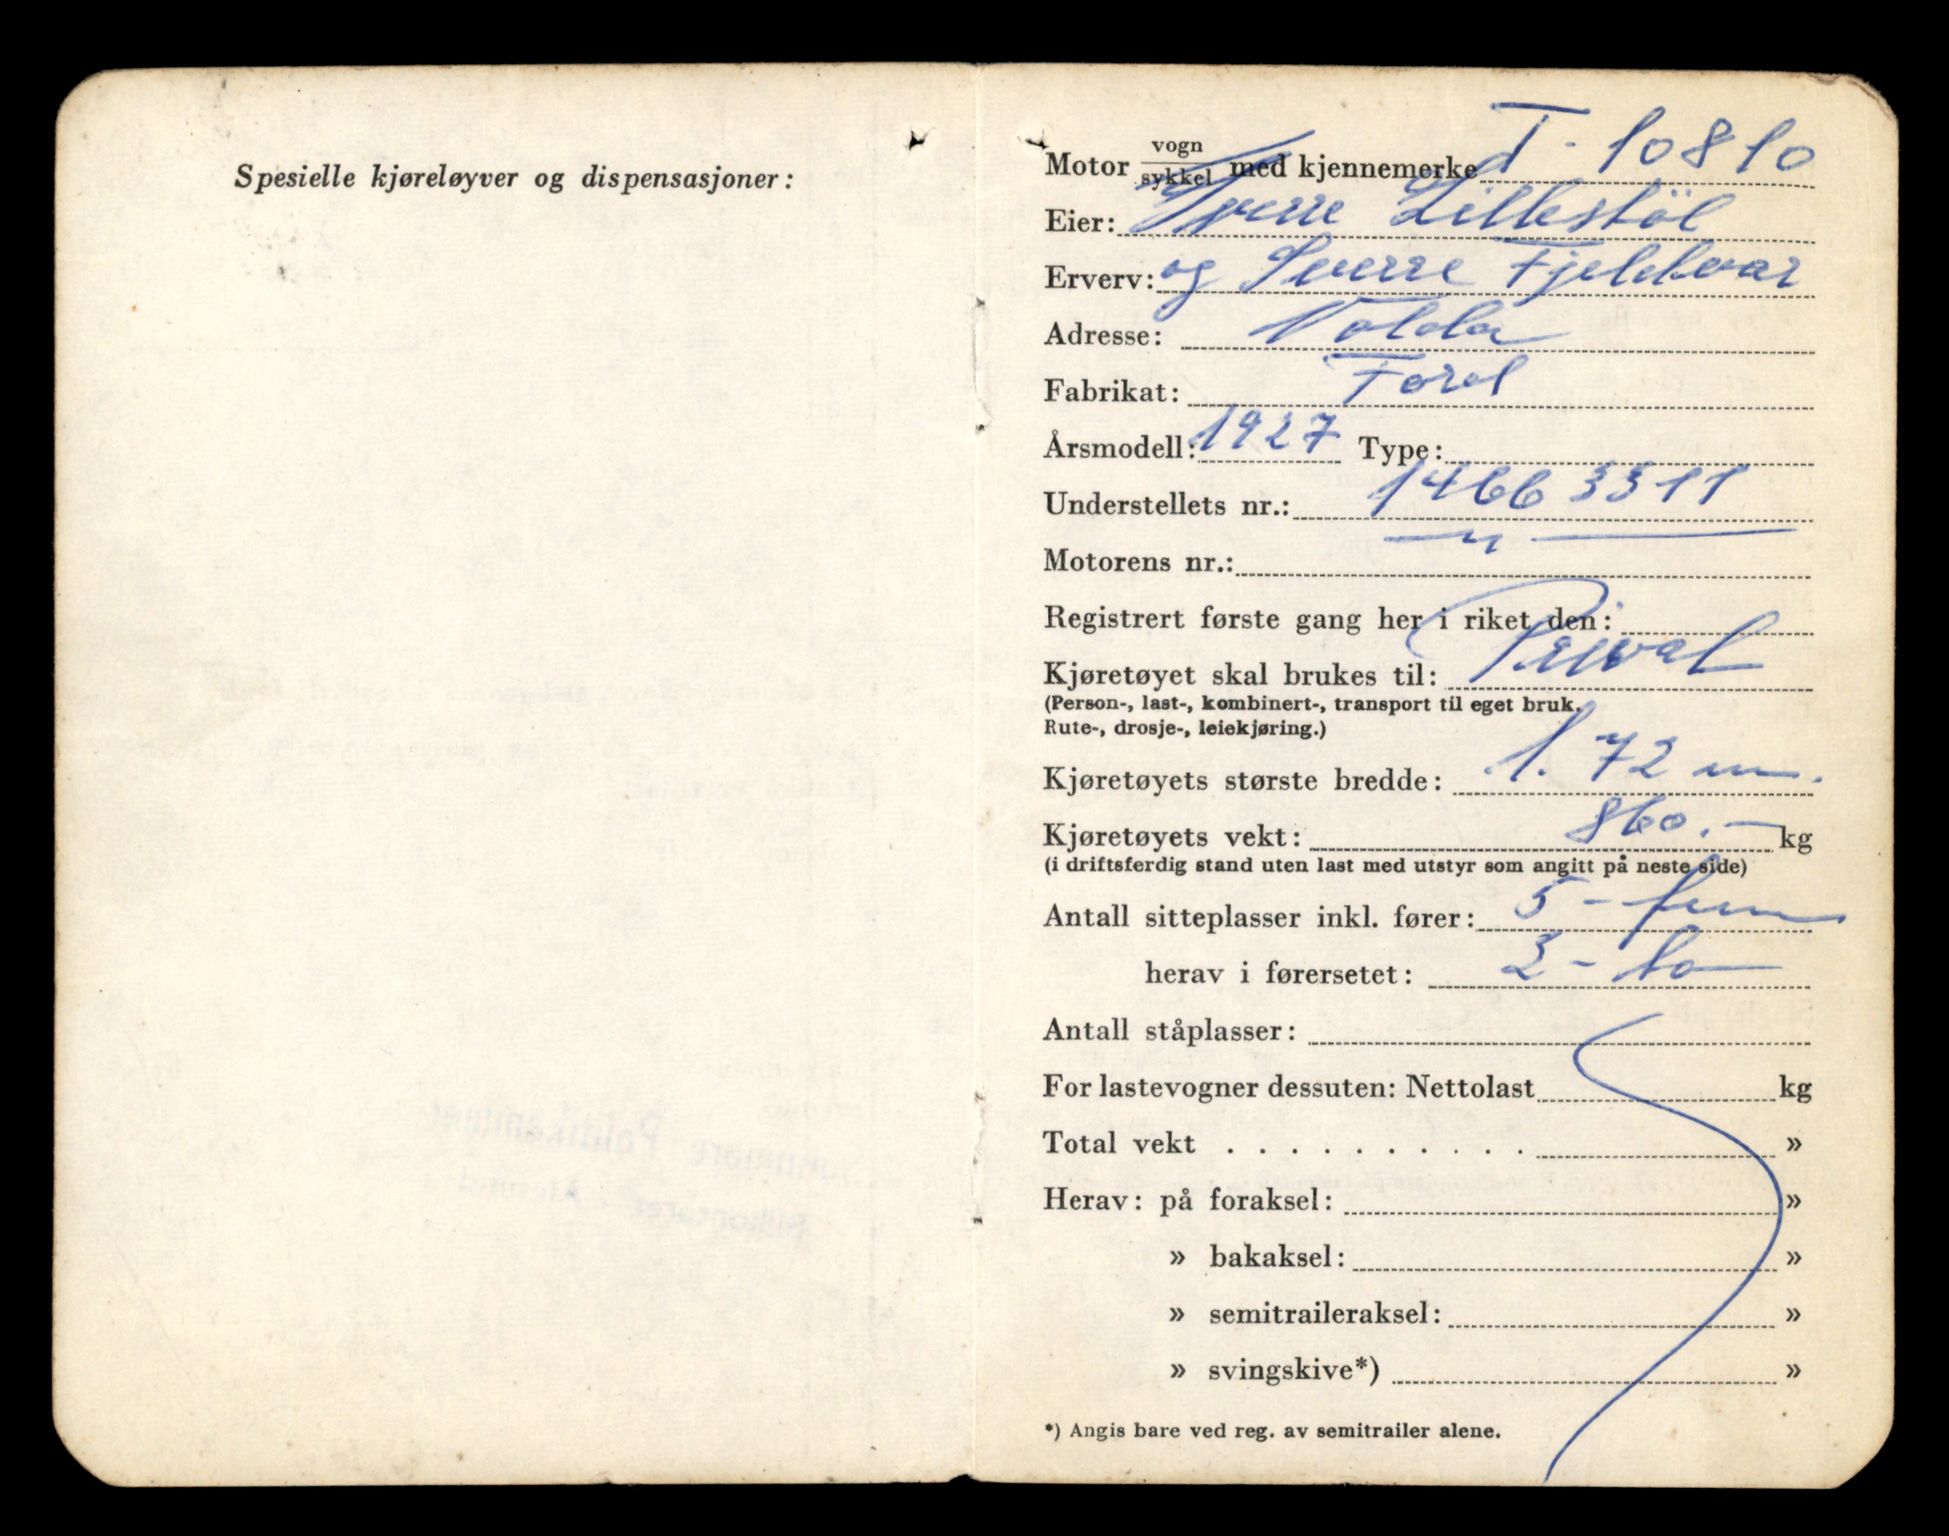 Spesielle kjøreløyver og dispensasjoner:
Motor vogn/sykkel med kjennemerke T - 10810
Eier: Sverre Lillestöl
Erverv: og Sverre Fjeldvar
Adresse: Volda
Fabrikat: Ford
Årsmodell: 1927 Type:
Understellets nr.: 14663311
Motorens nr.:
Registrert første gang her i riket den:
Kjøretøyet skal brukes til: Privat
(Person-, last-, kombinert-, transport til eget bruk.
Rute-, drosje-, leiekjøring.)
Kjøretøyets største bredde: 1.72 m.
Kjøretøyets vekt: 860.- kg
(i driftsferdig stand uten last med utstyr som angitt på neste side)
Antall sitteplasser inkl. fører: 5 - fem
herav i førersetet: 2 - to
Antall ståplasser:
For lastevogner dessuten: Nettolast kg
Total vekt . . . . . . . . . . »
Herav: på foraksel: »
» bakaksel: »
» semitraileraksel: »
» svingskive*) »
*) Angis bare ved reg. av semitrailer alene.